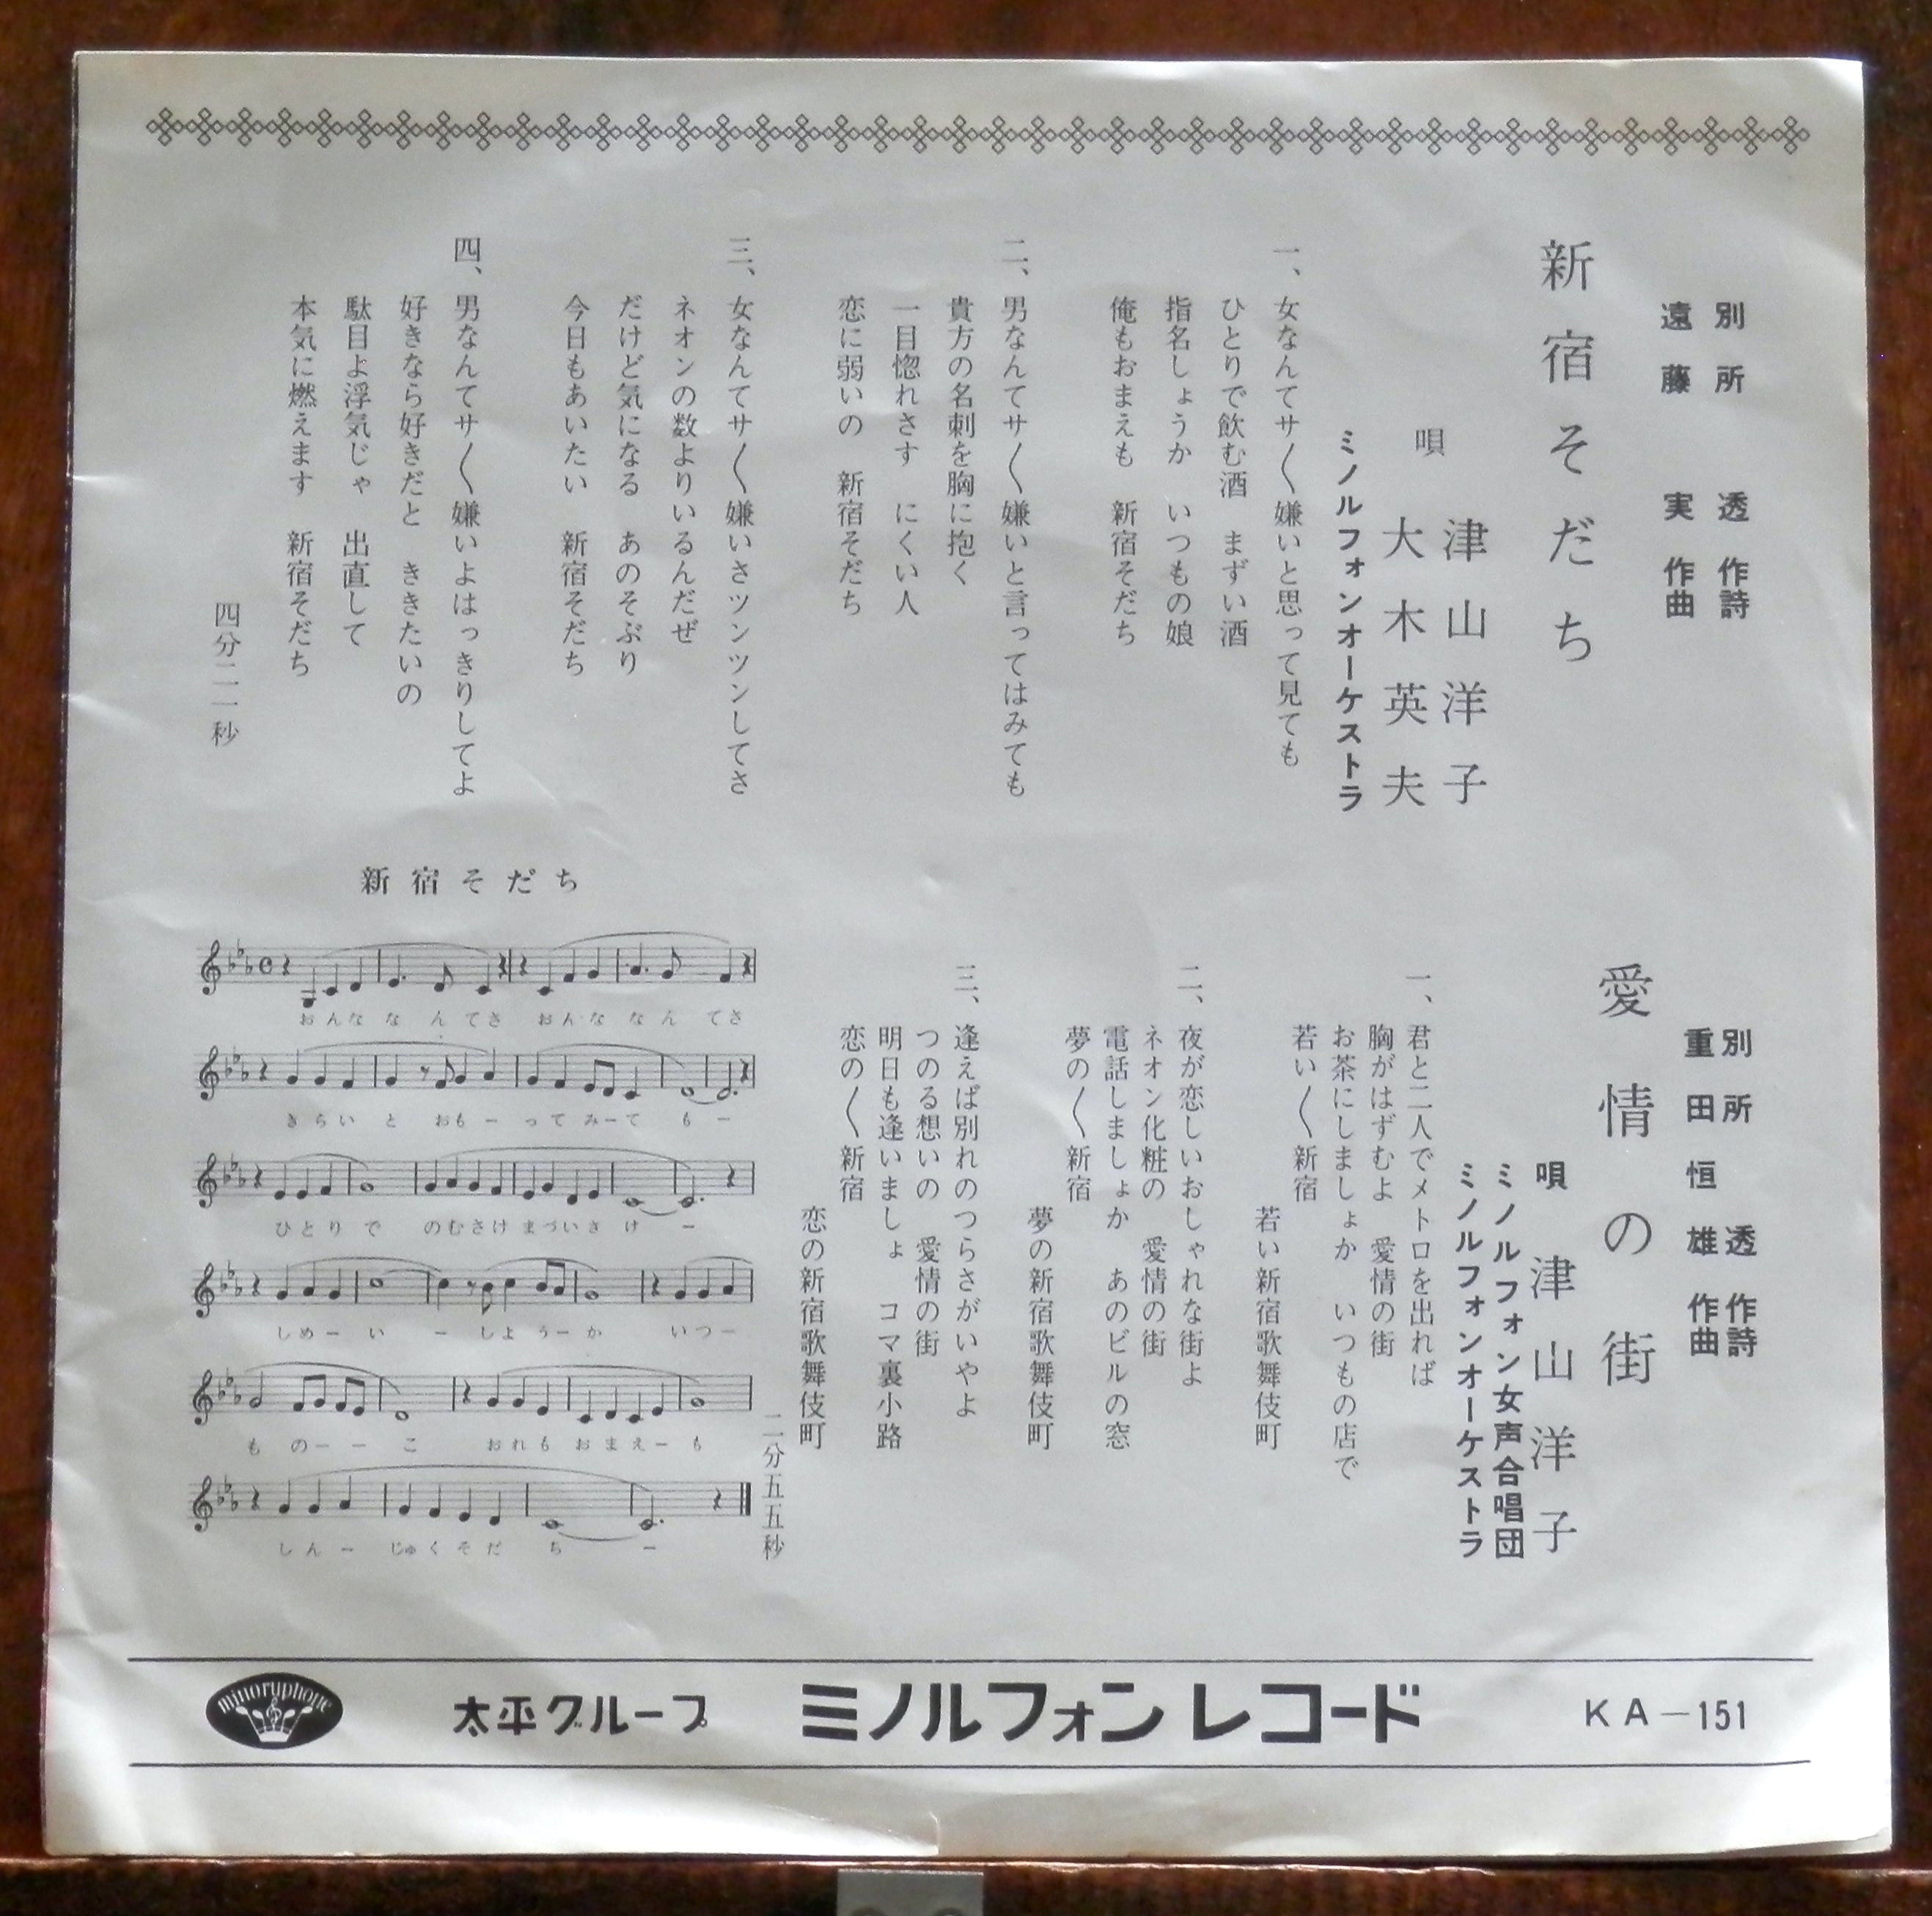 別所 透 作詩
遠藤 実 作曲
新宿そだち
唄
津山洋子
大木英夫
ミノルフォンオーケストラ
一、女なんてサ〱嫌いと思って見ても
ひとりで飲む酒 まずい酒
指名しょうか いつもの娘
俺もおまえも 新宿そだち
二、男なんてサ〱嫌いと言ってはみても
貴方の名刺を胸に抱く
一目惚れさす にくい人
恋に弱いの 新宿そだち
三、女なんてサ〱嫌いさツンツンしてさ
ネオンの数よりいるんだぜ
だけど気になる あのそぶり
今日もあいたい 新宿そだち
四、男なんてサ〱嫌いよはっきりしてよ
好きなら好きだと ききたいの
駄目よ浮気じゃ 出直して
本気に燃えます 新宿そだち
四分二一秒
別所 透 作詩
重田恒雄 作曲
愛情の街
唄 津山洋子
ミノルフォン女声合唱団
ミノルフォンオーケストラ
一、君と二人でメトロを出れば
胸がはずむよ 愛情の街
お茶にしましょか いつもの店で
若い〱新宿
若い新宿歌舞伎町
二、夜が恋しいおしゃれな街よ
ネオン化粧の 愛情の街
電話しましょか あのビルの窓
夢の〱新宿
夢の新宿歌舞伎町
三、逢えば別れのつらさがいやよ
つのる想いの 愛情の街
明日も逢いましょ コマ裏小路
恋の〱新宿
恋の新宿歌舞伎町
二分五五秒
新宿そだち
おんな な ん てさ おんな なん てさ
きらい と おもー って みーて もー
ひとり で のむさけ まづいさ け ー
しめー い ー しよ うー か いつー
も のー ー こ おれも おまえー も
しんー じゅくそだ ち ー
minoruphone
太平グループ
ミノルフォンレコード
KA—151